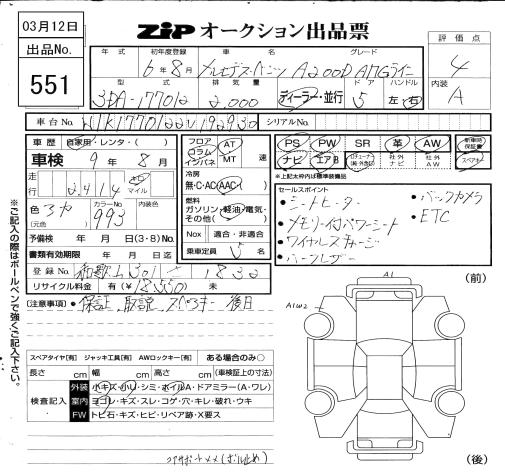 03月12日
ZIP オークション出品票
出品No. 551
年式 初年度登録 車名 グレード
6年8月 メルセデス・ベンツ A200D AMGライン
型式 排気量 ドア ハンドル
3DA-177012 2,000 ディーラー・並行 5 左・右
評価点 4
内装 A
車台No. W1K1770122V192930 シリアルNo.
車歴 自家用・レンタ・( )
車検 9年 8月
走行 2,414 キロ マイル
色 (元色) カラーNo. 993 内装色
予備検 年 月 日(3・8)No.
書類有効期限 年 月 日迄
登録No. 和歌山 301 1832
リサイクル料金 有(¥18,550) 未
フロア コラム インパネ AT MT 速
冷房 無・C・AC・AAC( )
燃料 ガソリン・軽油・電気・その他( )
Nox 適合・非適合
乗車定員 5名
PS PW SR 革 AW
ナビ エアB 社外ナビ 社外AW
新車時保証書 スペアキー
*上記太枠内は標準装備品
セールスポイント
・シートヒーター
・メモリー付パワーシート
・ワイヤレスチャージ
・ハーフレザー
・バックカメラ
・ETC
[注意事項]・保証、取説、スペアキー 後日
※ご記入の際はボールペンで強くご記入下さい。
スペアタイヤ[有] ジャッキ工具[有] AWロックキー[有] ある場合のみ○
長さ cm 幅 cm 高さ cm (車検証上の寸法)
検査記入 外装 小キズ・小凹・シミ・ホイルA・ドアミラー(A・ワレ)
室内 ヨゴレ・キズ・スレ・コゲ・穴・キレ・破れ・ウキ
FW トビ石・キズ・ヒビ・リペア跡・X要ス
A1
A1W2
(前)
(後)